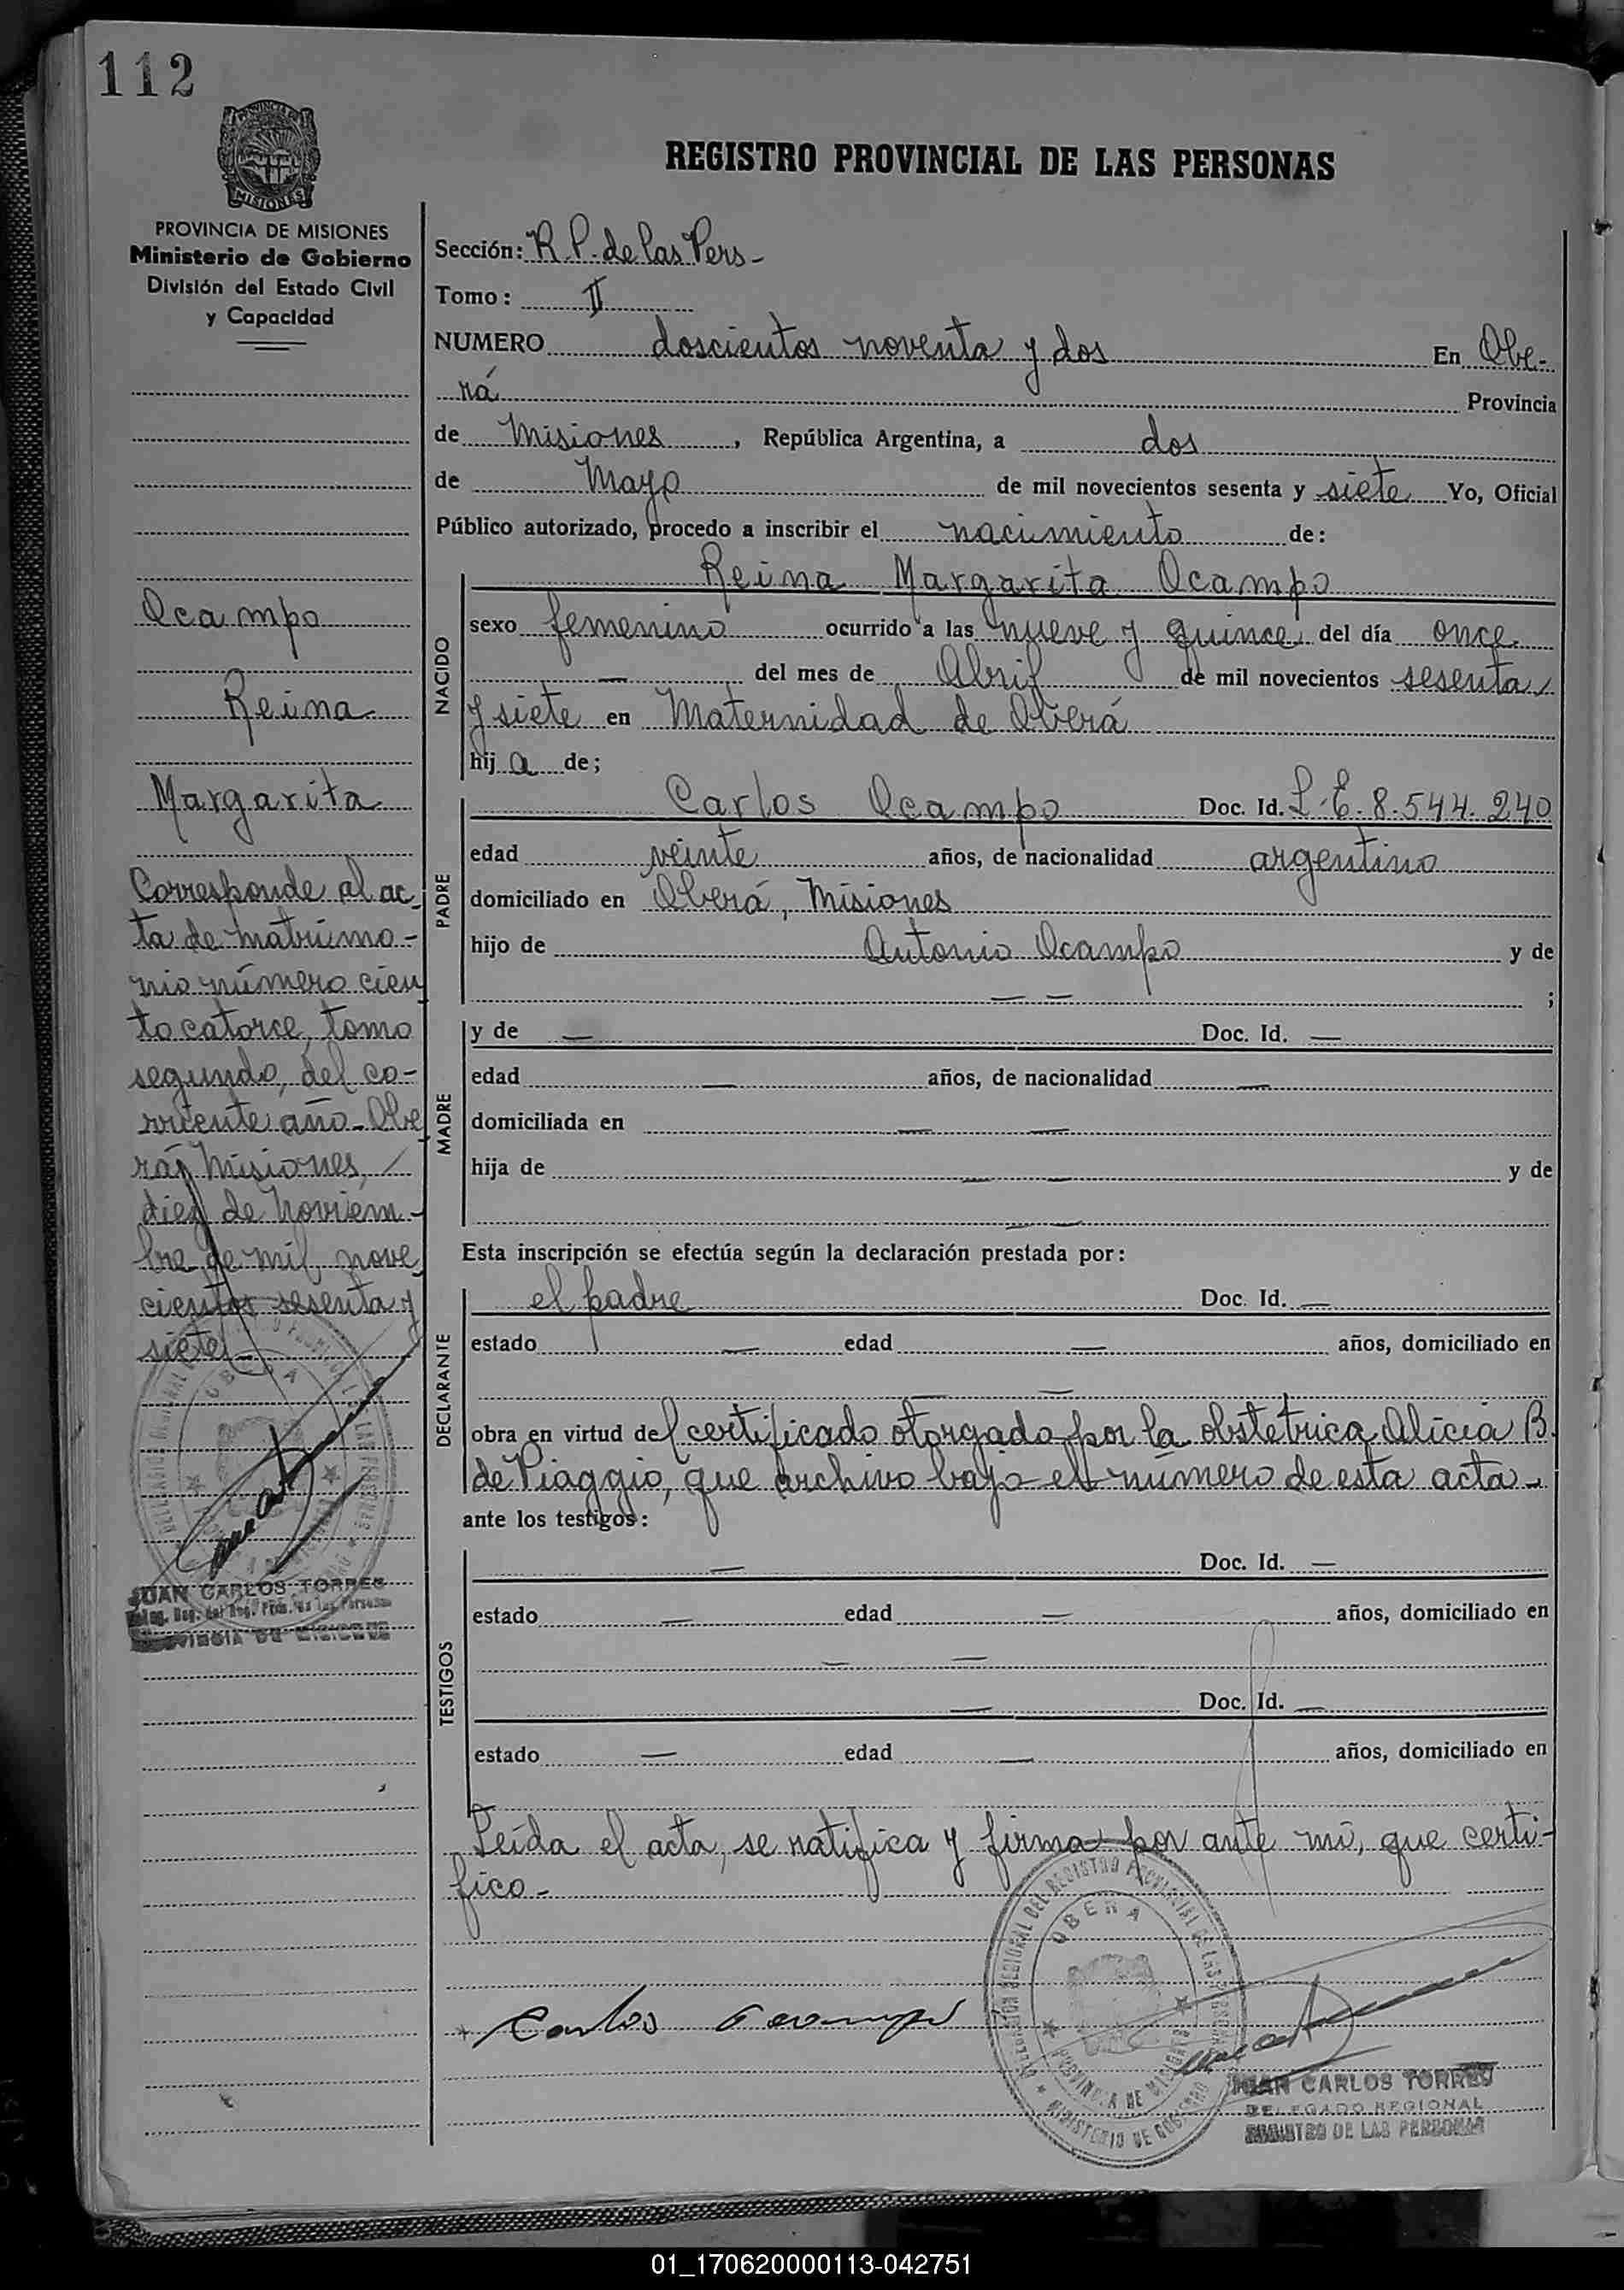 112
PROVINCIA DE
MISIONES
PROVINCIA DE MISIONES
Ministerio de Gobierno
División del Estado Civil
y Capacidad
Ocampo
Reina
Margarita
Corresponde al ac-
ta de matrimo-
nio número cien
to catorce, tomo
segundo, del co-
rriente año - Obe
rá, Misiones,
diez de Noviem-
bre de mil nove
cientos sesenta y
siete -
OBERA
JUAN CARLOS TORRES
Deleg. Reg. del Reg. Prov. de las Personas
PROVINCIA DE MISIONES
REGISTRO PROVINCIAL DE LAS PERSONAS
Sección: R. P. de las Pers -
Tomo: II
NUMERO doscientos noventa y dos En Obe-
rá Provincia
de Misiones, República Argentina, a dos
de Mayo de mil novecientos sesenta y siete Yo, Oficial
Público autorizado, procedo a inscribir el nacimiento de:
NACIDO
Reina Margarita Ocampo
sexo femenino ocurrido a las nueve y quince del día once
— del mes de Abril de mil novecientos sesenta
y siete en Maternidad de Oberá
hij a de;
PADRE
Carlos Ocampo Doc. Id. L. E. 8.544.240
edad veinte años, de nacionalidad argentino
domiciliado en Oberá, Misiones
hijo de Antonio Ocampo y de
— — ;
MADRE
y de — Doc. Id. —
edad — años, de nacionalidad —
domiciliada en — —
hija de — — y de
— —
Esta inscripción se efectúa según la declaración prestada por:
DECLARANTE
el padre Doc. Id. —
estado — edad — años, domiciliado en
— —
obra en virtud del certificado otorgado por la obstetrica Alicia B.
de Piaggio, que archivo bajo el número de esta acta -
ante los testigos:
TESTIGOS
— Doc. Id. —
estado — edad — años, domiciliado en
— —
— Doc. Id. —
estado — edad — años, domiciliado en
Leída el acta, se ratifica y firma por ante mí, que certi-
fico -
DELEGACION REGIONAL DEL REGISTRO PROVINCIAL DE LAS PERSONAS
OBERA
PROVINCIA DE MISIONES
MINISTERIO DE GOBIERNO
Carlos Ocampo
JUAN CARLOS TORRES
DELEGADO REGIONAL
REGISTRO DE LAS PERSONAS
01_170620000113-042751